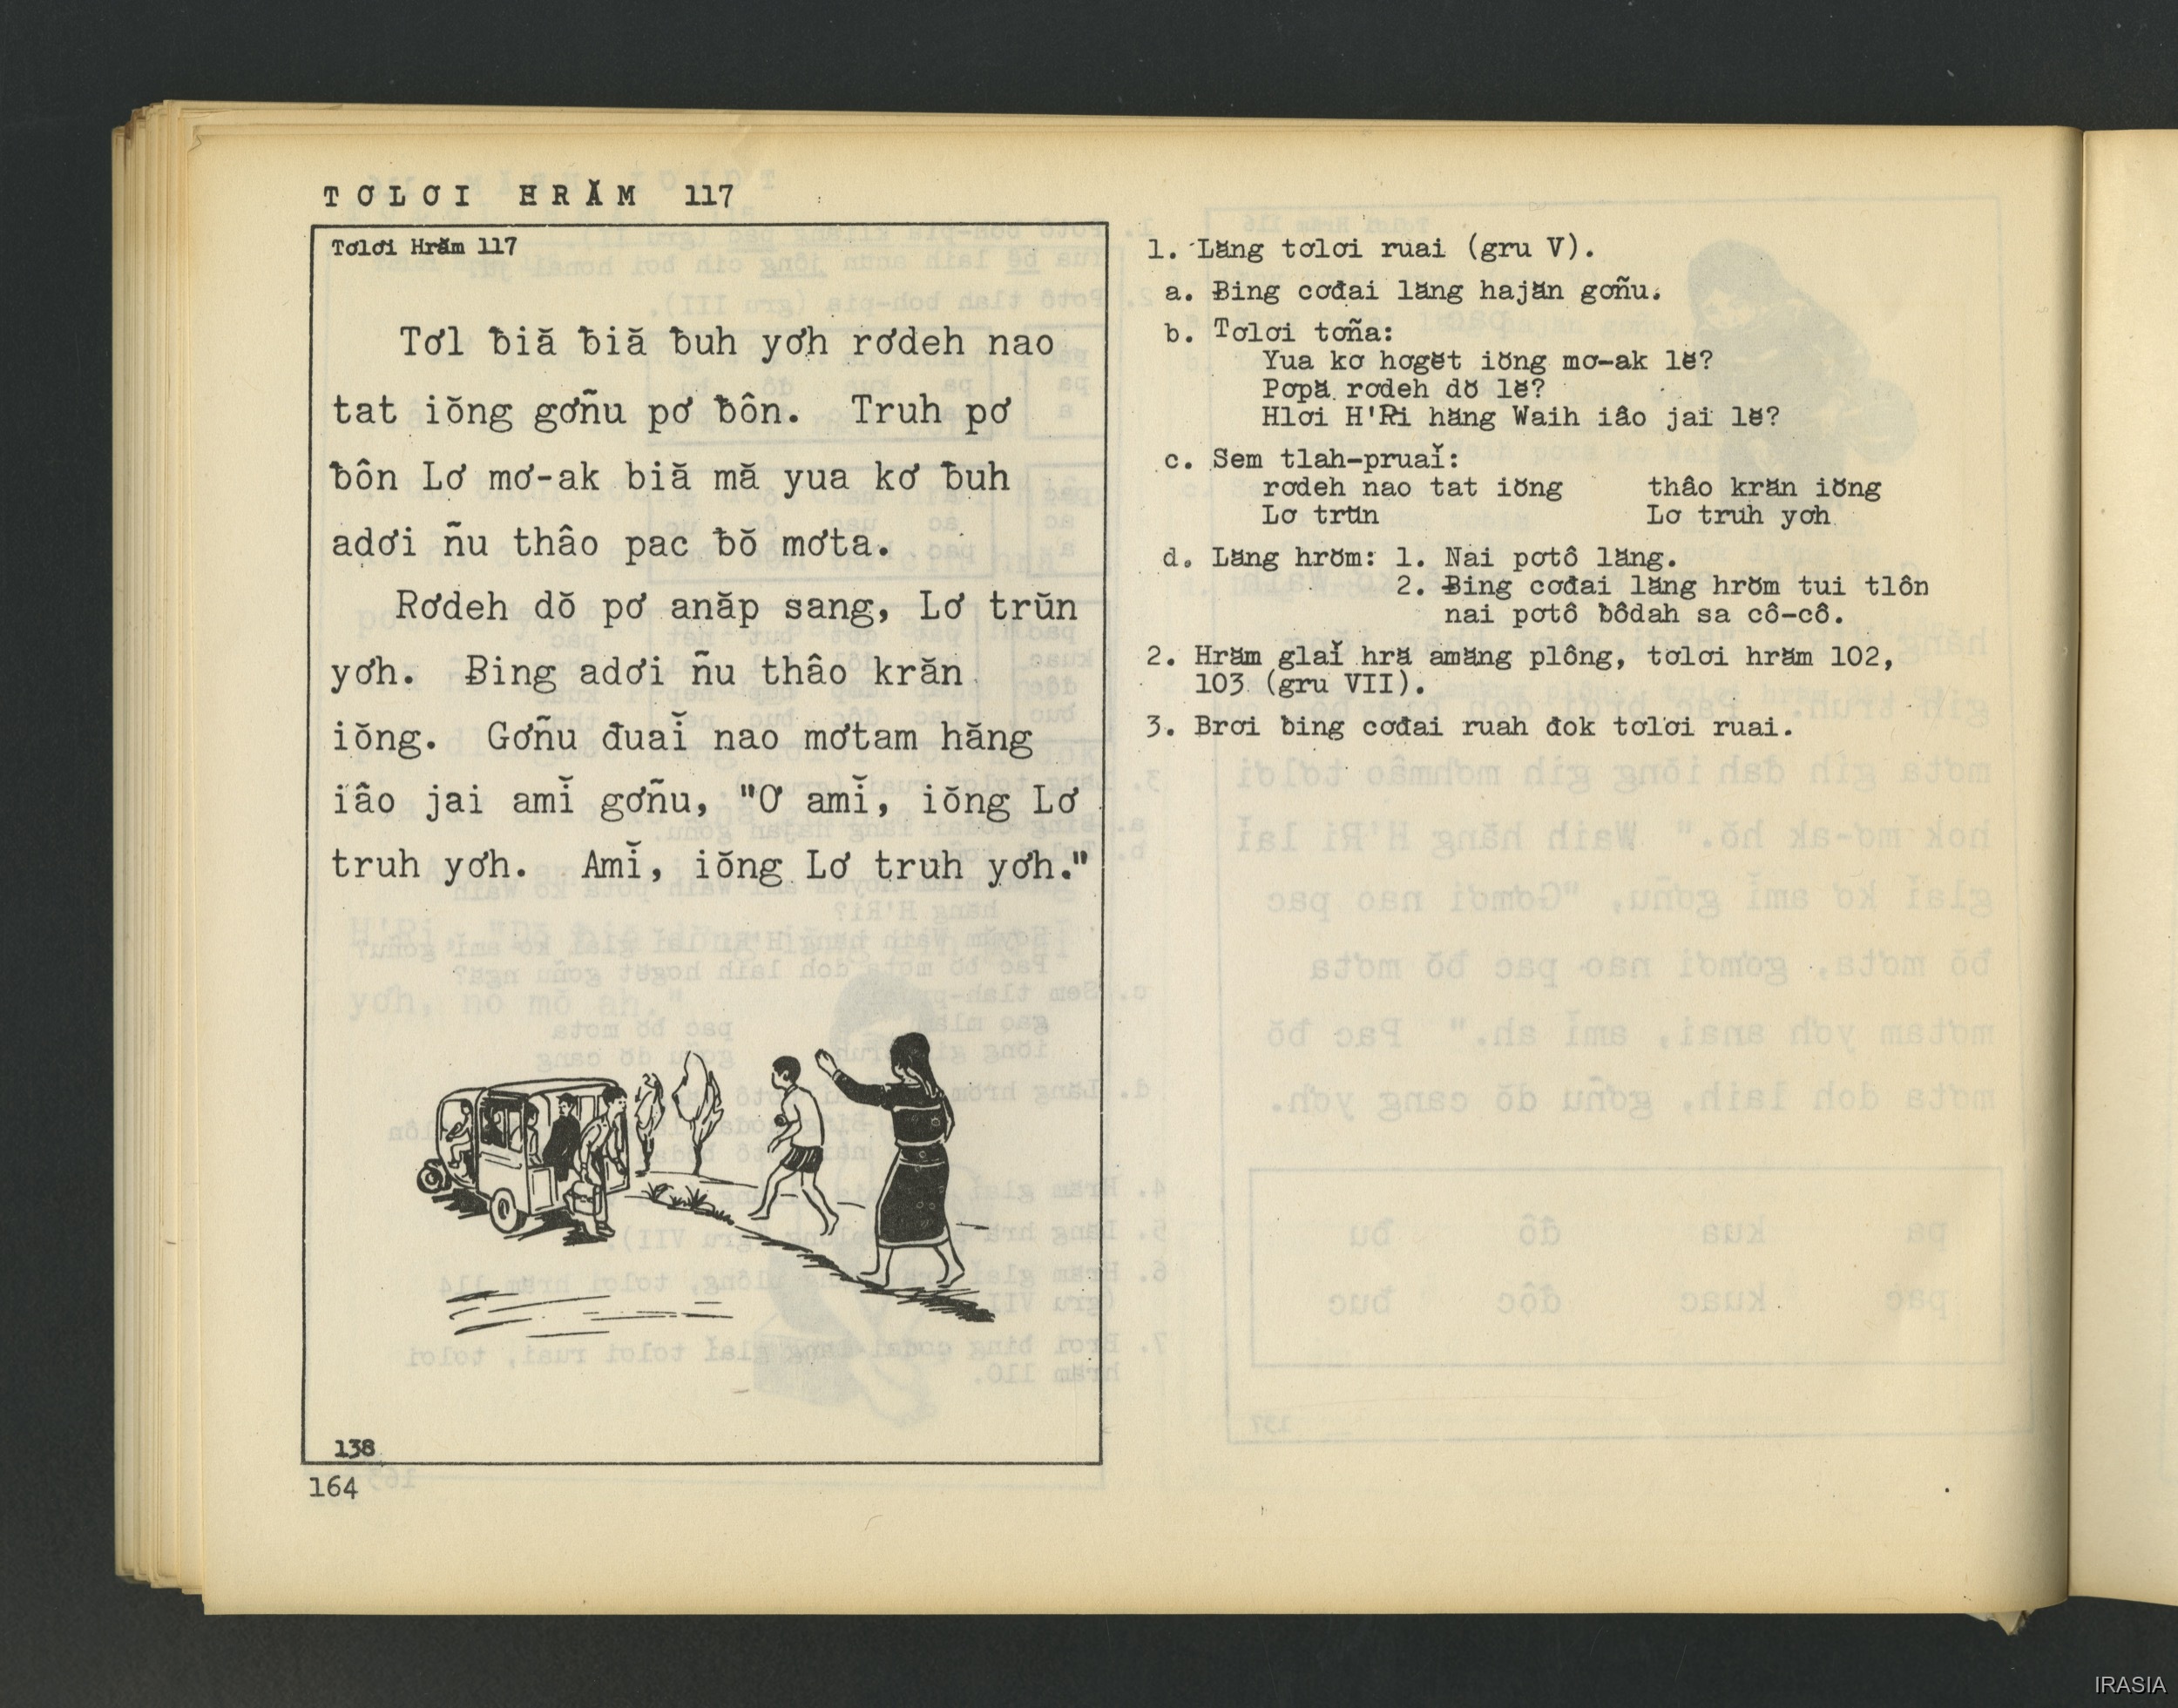 TƠLƠI HRĂM 117
Tơlơi Hrăm 117
Tơl ƀiă ƀiă ƀuh yơh rơdeh nao
tat iŏng gơñu pơ ƀôn. Truh pơ
ƀôn Lơ mơ-ak biă mă yua kơ ƀuh
adơi ñu thâo pac ƀŏ mơta.
Rơdeh dŏ pơ anăp sang, Lơ trŭn
yơh. Ƀing adơi ñu thâo krăn
iŏng. Gơñu đuaĭ nao mơtam hăng
iâo jai amĭ gơñu, "Ơ amĭ, iŏng Lơ
truh yơh. Amĭ, iŏng Lơ truh yơh."
138
164
1. Lăng tơlơi ruai (gru V).
a. Ƀing cơđai lăng hajăn gơñu.
b. Tơlơi tơña:
Yua kơ hơgĕt iŏng mơ-ak lĕ?
Pơpă rơdeh dŏ lĕ?
Hlơi H'Ri hăng Waih iâo jai lĕ?
c. Sem tlah-pruaĭ:
rơdeh nao tat iŏng thâo krăn iŏng
Lơ trŭn Lơ truh yơh
d. Lăng hrŏm: 1. Nai pơtô lăng.
2. Ƀing cơđai lăng hrŏm tui tlôn
nai pơtô ƀôdah sa cô-cô.
2. Hrăm glaĭ hră amăng plông, tơlơi hrăm 102,
103 (gru VII).
3. Brơi ƀing cơđai ruah đok tơlơi ruai.
IRASIA